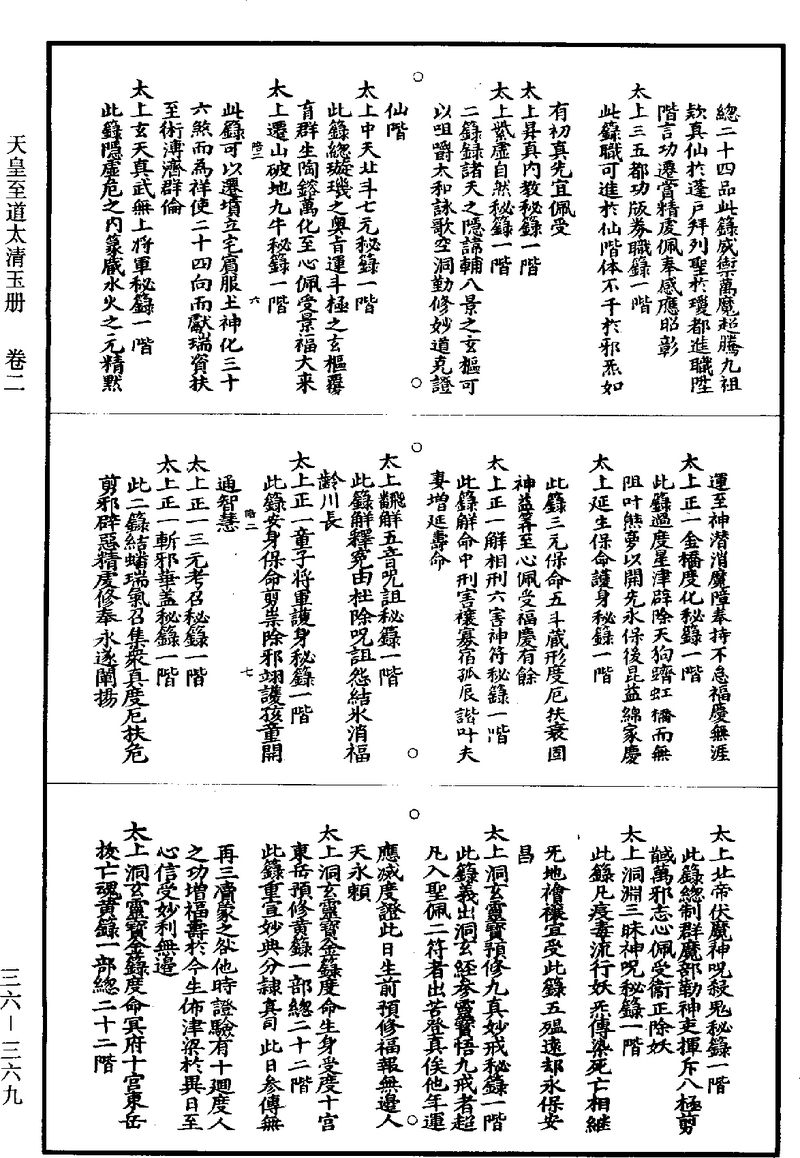 天皇至道太清玉册 卷二
總二十四品此錄威禦萬魔超騰九祖
欵真仙於蓬戶拜列聖於瓊都進職陞
階言功遷賞精虔佩奉感應昭彰
太上三五都功版券職錄一階
此錄職可進於仙階体不干於邪炁如
有初真先宜佩受
太上昇真内教秘錄一階
太上紫虛自然秘錄一階
二錄錄諸天之隱諱輔八景之玄樞可
以咀嚼太和詠歌空洞勤修妙道克證
仙階
太上中天北斗七元秘錄一階
此錄總璇璣之奥旨運斗極之玄樞覆
育群生陶鎔萬化至心佩受景福大来
太上遷山破地九牛秘錄一階
此錄可以遷墳立宅賓服土神化三十
六煞而為祥使二十四向而獻瑞資扶
至術溥濟群倫
太上玄天真武無上將軍秘錄一階
此錄隱虛危之内篆藏水火之元精黙
運至神潜消魔障奉持不怠福慶無涯
太上正一金橋度化秘錄一階
此錄過度星津辟除天狗躋虹橋而無
阻叶熊夢以開先永保後昆益綿家慶
太上延生保命護身秘錄一階
此錄三元保命五斗藏形度厄扶衰固
神益筭至心佩受福慶有餘
太上正一解相刑六害神符秘錄一階
此錄解命中刑害禳寡宿孤辰諧叶夫
妻增延壽命
太上飜解五音呪詛秘錄一階
此錄解釋冤由杜除呪詛怨結氷消福
齡川長
太上正一童子將軍護身秘錄一階
此錄安身保命剪祟除邪翊護孩童開
通智慧
太上正一三元考召秘錄一階
太上正一斬邪華盖秘錄一階
此二錄結蟠瑞氣召集衆真度厄扶危
剪邪辟惡精虔修奉永遂闡揚
太上北帝伏魔神呪殺鬼秘錄一階
此錄總制群魔部勒神吏揮斥八極剪
馘萬邪志心佩受衛正除妖
太上洞淵三昧神呪秘錄一階
此錄凡疫毒流行妖炁傳染死亡相継
旡地禬禳宜受此錄五瘟遠却永保安
昌
太上洞玄靈寶預修九真妙戒秘錄一階
此錄義出洞玄経叅靈寶悟九戒者超
凡入聖佩二符者出苦登真俟他年運
應威度證此日生前預修福報無邊人
天永賴
太上洞玄靈寶金籙度命生身受度十宮
東岳預修黄錄一部總二十二階
此錄重宣妙典分隷真司此日叅傳無
再三瀆蒙之欲他時證驗有十廻度人
之功增福壽於今生佈津梁於異日至
心信受妙利無邊
太上洞玄靈寶金籙度命冥府十宮東岳
拔亡魂黄錄一部總二十二階
三六—三六九